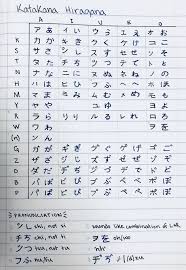 Katakana Hiragana
A I U E O
アあ イい ウう エえ オお
K カか キき クく ケけ コこ
S サさ シし スす セせ ソそ
T タた チち ツつ テて トと
N ナな ニに ヌぬ ネね ノの
H ハは ヒひ フふ ヘへ ホほ
M マま ミみ ムむ メめ モも
Y ヤや ユゆ ヨよ
R ラら リり ルる レれ ロろ
W ワわ ヲを
(n) ンん
G ガが ギぎ グぐ ゲげ ゴご
Z ザざ ジじ ズず ゼぜ ゾぞ
D ダだ ヂぢ ヅづ デで ドど
B バば ビび ブぶ ベべ ボぼ
P パぱ ピぴ プぷ ペぺ ポぽ
PRONUNCIATION
シし shi, not si
sounds like combination of L+R
チち chi, not ti
ヲを oh/wo
ツつ tsu, not tu
フふ hu/fu
ヂぢ